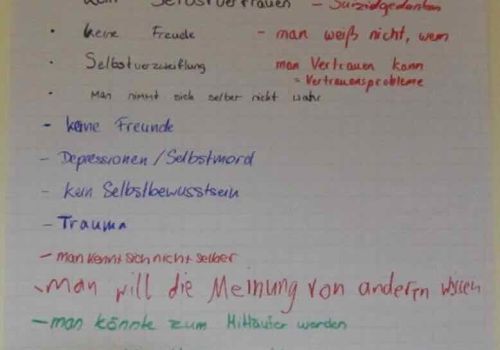 kein Selbstvertrauen – Suizidgedanken
· keine Freude – man weiß nicht, wem
· Selbstverzweiflung man Vertrauen kann
= Vertrauensprobleme
· Man nimmt sich selber nicht wahr
- keine Freunde
- Depressionen/Selbstmord
- kein Selbstbewusstsein
- Trauma
- man kennt sich nicht selber
- man will die Meinung von anderen wissen
- man könnte zum Mitläufer werden